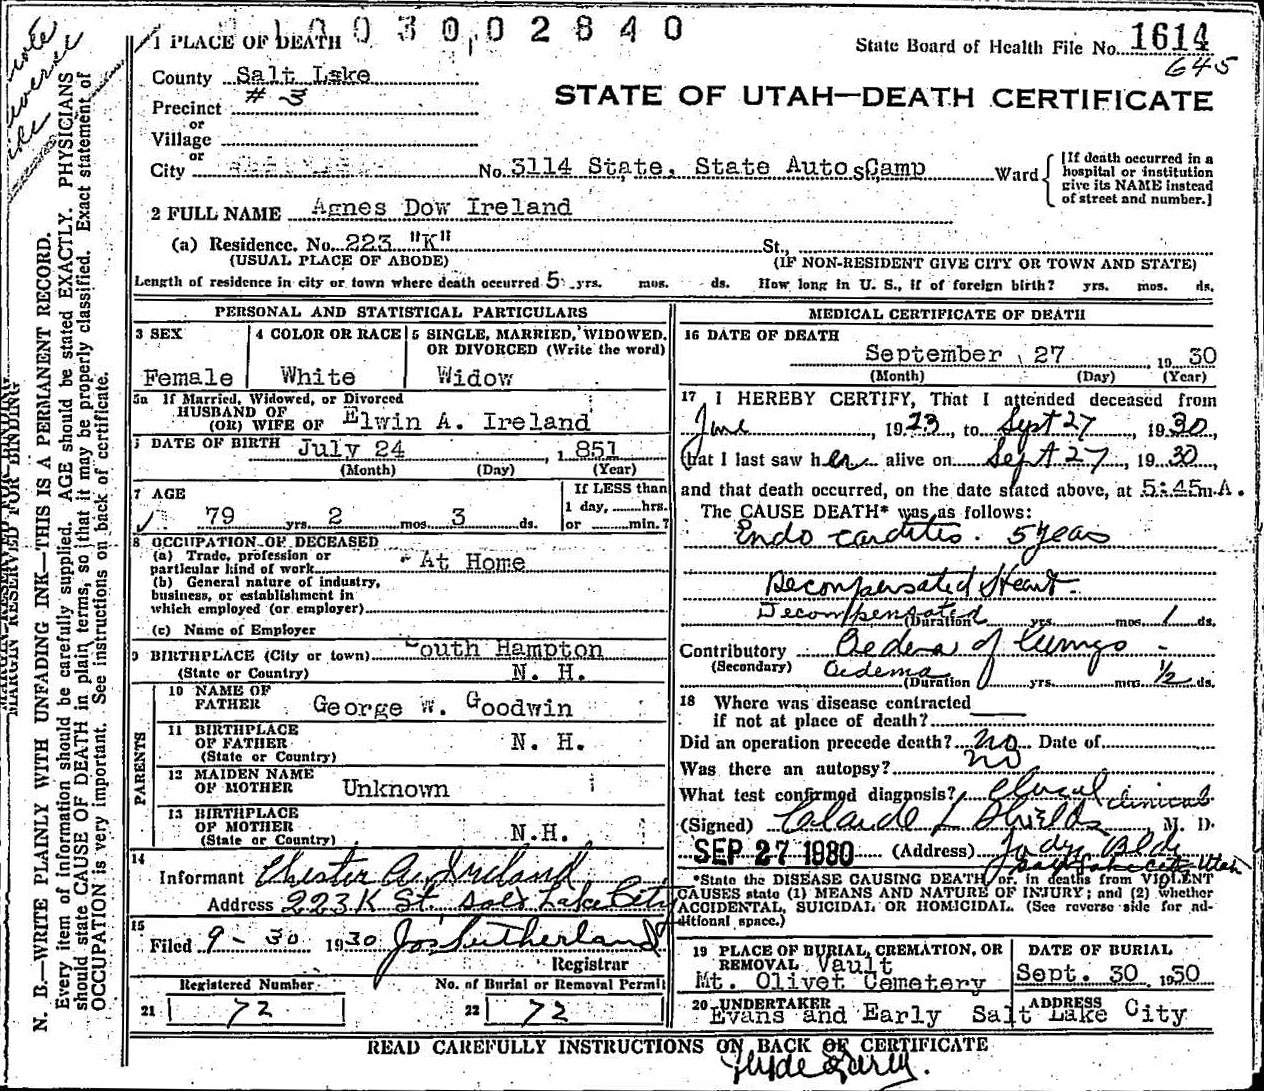 3002840
1 PLACE OF DEATH
State Board of Health File No. 1614
645
County Salt Lake
STATE OF UTAH—DEATH CERTIFICATE
Precinct # 3
or
Village
or
City No. 3114 State, State Auto Camp Ward
[If death occurred in a
hospital or institution
give its NAME instead
of street and number.]
2 FULL NAME Agnes Dow Ireland
(a) Residence. No. 223 "K" St.,
(USUAL PLACE OF ABODE) (IF NON-RESIDENT GIVE CITY OR TOWN AND STATE)
Length of residence in city or town where death occurred 5 yrs. mos. ds. How long in U. S., if of foreign birth? yrs. mos. ds.
PERSONAL AND STATISTICAL PARTICULARS
3 SEX
Female
4 COLOR OR RACE
White
5 SINGLE, MARRIED, WIDOWED,
OR DIVORCED (Write the word)
Widow
5a If Married, Widowed, or Divorced
HUSBAND OF
(OR) WIFE OF Elwin A. Ireland
DATE OF BIRTH July 24, 1851
(Month) (Day) (Year)
7 AGE
79 yrs. 2 mos. 3 ds.
If LESS than
1 day, hrs.
or min.?
8 OCCUPATION OF DECEASED
(a) Trade, profession or
particular kind of work At Home
(b) General nature of industry,
business, or establishment in
which employed (or employer)
(c) Name of Employer
9 BIRTHPLACE (City or town) South Hampton
(State or Country) N. H.
PARENTS
10 NAME OF
FATHER George W. Goodwin
11 BIRTHPLACE
OF FATHER N. H.
(State or Country)
12 MAIDEN NAME
OF MOTHER Unknown
13 BIRTHPLACE
OF MOTHER
(State or Country) N.H.
14
Informant Chester A. Ireland
Address 223 K St. Salt Lake City
15
Filed 9-30 1930 Jos Sutherland
Registrar
Registered Number
21 72
No. of Burial or Removal Permit
22 72
MEDICAL CERTIFICATE OF DEATH
16 DATE OF DEATH
September 27 1930
(Month) (Day) (Year)
17 I HEREBY CERTIFY, That I attended deceased from
June, 1923, to Sept 27, 1930,
that I last saw her alive on Sept 27, 1930,
and that death occurred, on the date stated above, at 5:45 m. A.
The CAUSE DEATH* was as follows:
Endo carditis. 5 years
Decompensated Heart.
Decompensated (Duration yrs. mos. 1 ds.
Contributory Oedema of lungs -
(Secondary) Oedema (Duration yrs. mos. 1/2 ds.
18 Where was disease contracted
if not at place of death?
Did an operation precede death? no Date of
Was there an autopsy? no
What test confirmed diagnosis? Clinical clinical
(Signed) Claude L Shields M. D.
SEP 27 1930 (Address) Judge Bldg
Salt Lake City Utah
*State the DISEASE CAUSING DEATH or, in deaths from VIOLENT
CAUSES state (1) MEANS AND NATURE OF INJURY; and (2) whether
ACCIDENTAL, SUICIDAL OR HOMICIDAL. (See reverse side for ad-
ditional space.)
19 PLACE OF BURIAL, CREMATION, OR
REMOVAL Vault
Mt. Olivet Cemetery
DATE OF BURIAL
Sept. 30 1930
20 UNDERTAKER
Evans and Early
ADDRESS
Salt Lake City
READ CAREFULLY INSTRUCTIONS ON BACK OF CERTIFICATE
MARGIN RESERVED FOR BINDING
N. B.—WRITE PLAINLY WITH UNFADING INK—THIS IS A PERMANENT RECORD.
Every item of information should be carefully supplied. AGE should be stated EXACTLY. PHYSICIANS
should state CAUSE OF DEATH in plain terms, so that it may be properly classified. Exact statement of
OCCUPATION is very important. See instructions on back of certificate.